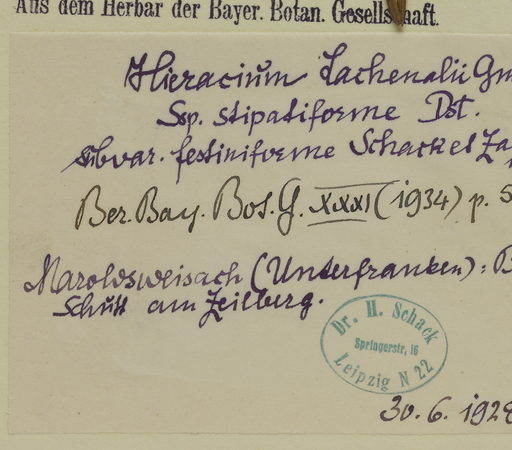 Aus dem Herbar der Bayer. Botan. Gesellschaft.
Hieracium Lachenalii Gm
Ssp. stipatiforme Dst.
subvar. festiniforme Schack et Za
Ber. Bay. Bot. G. XXXI (1934) p. 5
Maroldsweisach (Unterfranken): B
schutt am Zeilberg.
Dr. H. Schack
Springerstr. 16
Leipzig N 22
30. 6. 1928